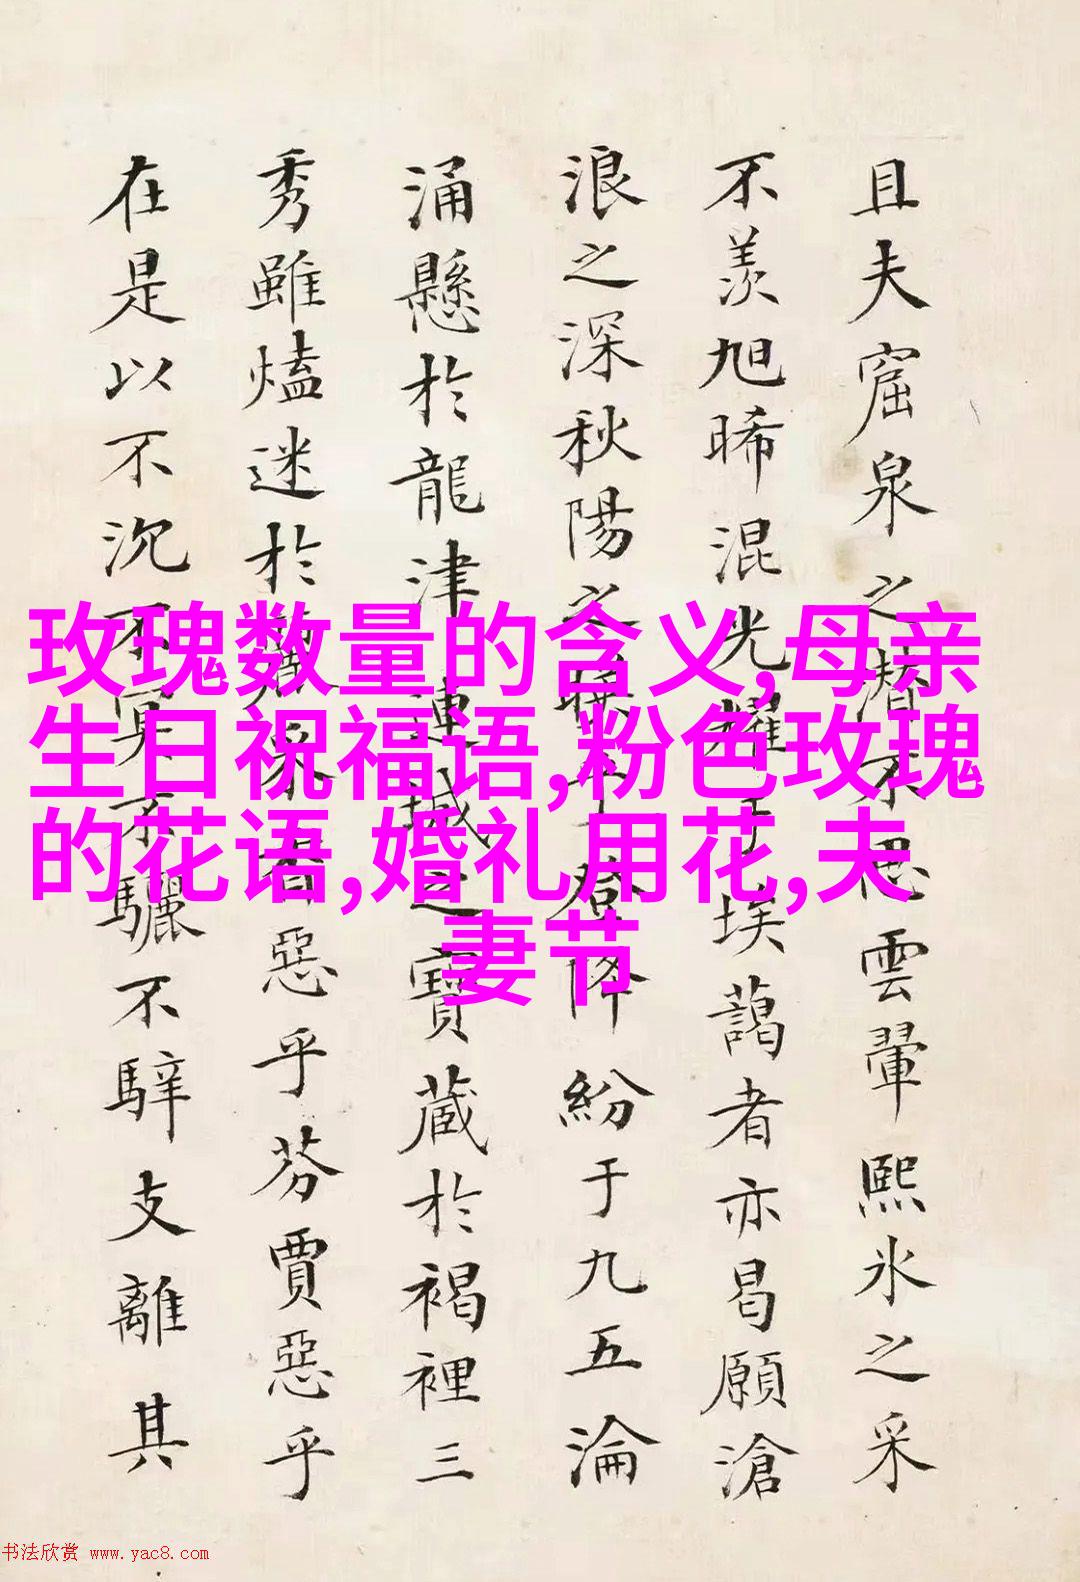 且夫窟泉之潛不思雲翬熙冰之采
不羨旭晞混光耀于埃藹者亦曷願滄
浪之深秋陽之暎登降紛于九五淪
涌懸於龍津連城之寶藏於褐裡三
秀雖迷於惡乎芬賈惡乎
在是以不沉不冥不驪不騂支離其
玫瑰数量的含义,母亲
生日祝福语,粉色玫瑰
的花语,婚礼用花,夫
妻节
书法欣赏 www.yac8.com